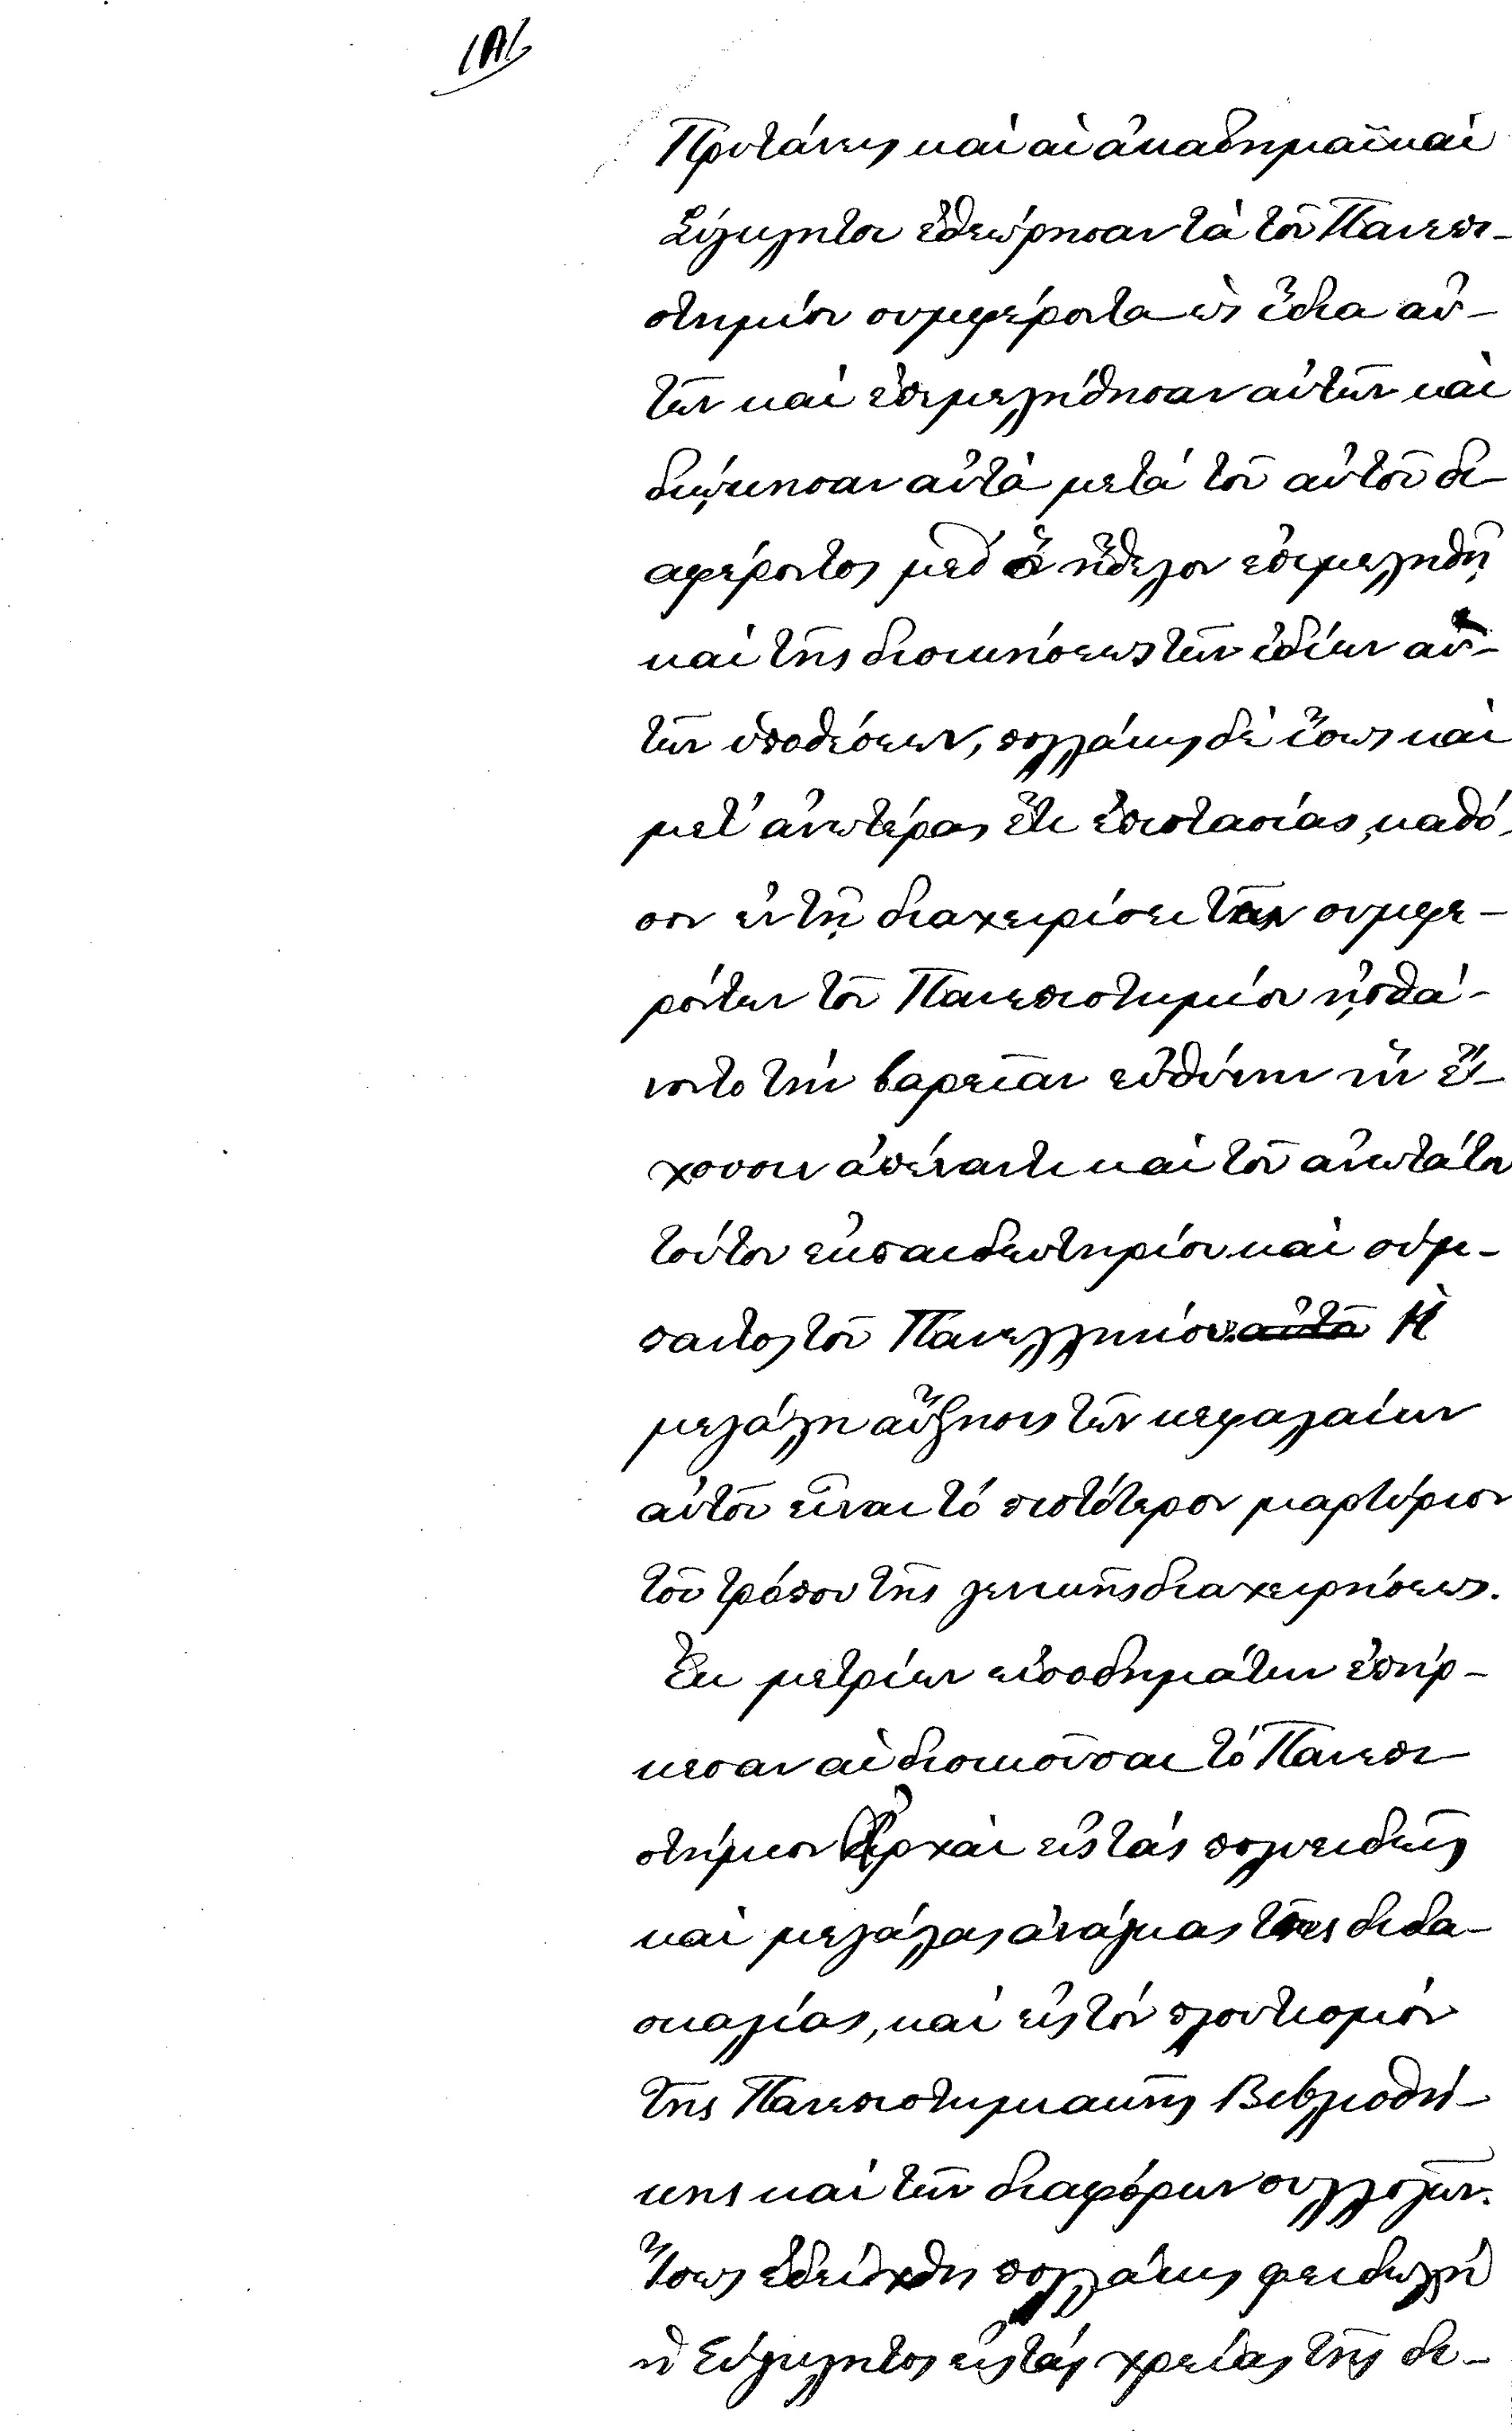 Πρυτάνεις καὶ αἱ ἀκαδημαϊκαὶ
Σύγκλητοι ἐθεώρησαν τὰ τοῦ Πανεπι-
στημίου συμφέροντα ὡς ἴδια αὐ-
τῶν καὶ ἐπεμελήθησαν αὐτῶν καὶ
διῴκησαν αὐτὰ μετὰ τοῦ αὐτοῦ δι-
αφέροντος μεθ' οὗ ἤθελον ἐπιμεληθῆ
καὶ τῆς διοικήσεως τῶν ἰδίων αὐ-
τῶν ὑποθέσεων, πολλάκις δὲ ἴσως καὶ
μετ' ἀνωτέρας ἔτι ἐπιστασίας, καθό-
σον ἐν τῇ διαχειρίσει τῶν συμφε-
ρόντων τοῦ Πανεπιστημίου ᾐσθά-
νοντο τὴν βαρεῖαν εὐθύνην ἣν ἔ-
χουσιν ἀπέναντι καὶ τοῦ ἀνωτάτου
τούτου ἐκπαιδευτηρίου καὶ σύμ-
παντος τοῦ Πανελληνίου. αὐτο Ἡ
μεγάλη αὔξησις τῶν κεφαλαίων
αὐτοῦ εἶναι τὸ πιστότερον μαρτύριον
τοῦ τρόπου τῆς γενικῆς διαχειρήσεως.
Ἐκ μετρίων εἰσοδημάτων ἐπήρ-
κεσαν αἱ διοικοῦσαι τὸ Πανεπι-
στήμιον Ἀρχαὶ εἰς τὰς πολυειδεῖς
καὶ μεγάλας ἀνάγκας τῆς διδα-
σκαλίας, καὶ εἰς τὸν πλουτισμὸν
τῆς Πανεπιστημιακῆς Βιβλιοθή-
κης καὶ τῶν διαφόρων συλλογῶν.
Ἴσως ἐδείχθη πολλάκις φειδωλὴ
ἡ Σύγκλητος εἰς τὰς χρείας τῆς δι-